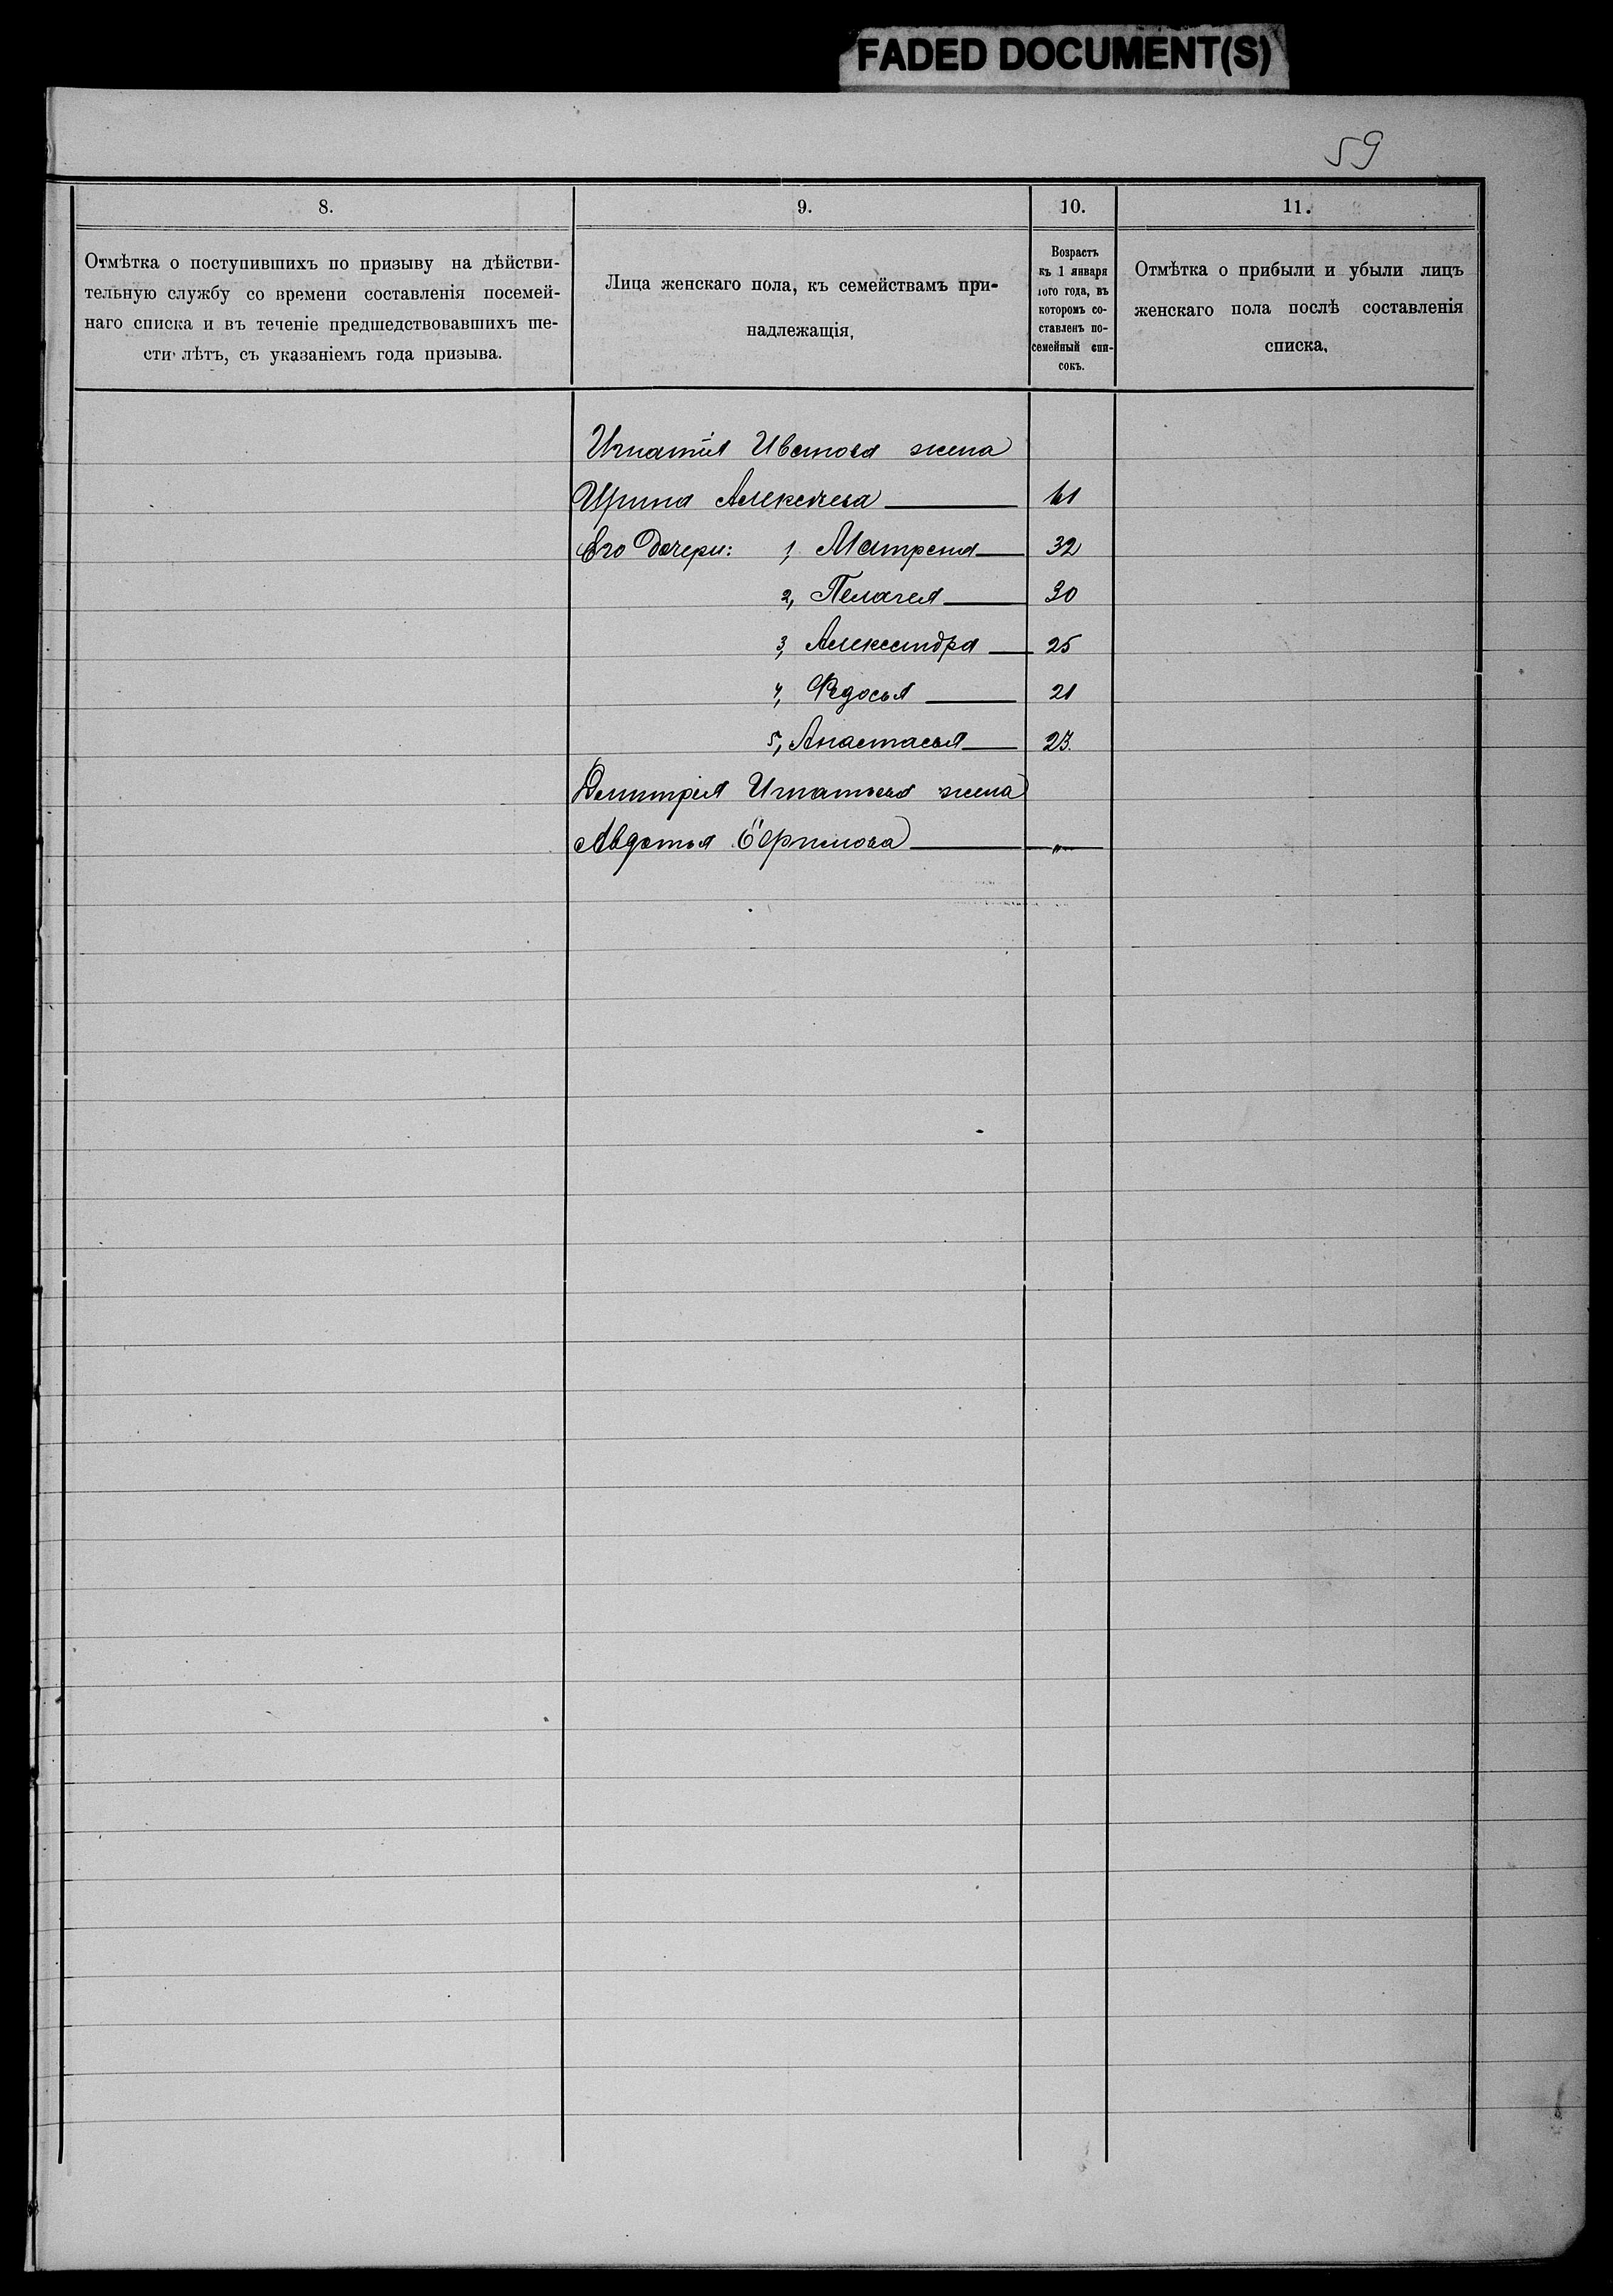 FADED DOCUMENT(S)
59
8.
9.
10.
11.
Отмѣтка о поступившихъ по призыву на дѣйстви-
тельную службу со времени составленія посемей-
наго списка и въ теченіе предшедствовавшихъ ше-
сти лѣтъ, съ указаніемъ года призыва.
Лица женскаго пола, къ семействамъ при-
надлежащія,
Возрастъ
къ 1 января
того года, въ
которомъ со-
ставленъ по-
семейный спи-
сокъ.
Отмѣтка о прибыли и убыли лицъ
женскаго пола послѣ составленія
списка,
Игнатія жена
Ирина Алексѣева 61
Его Дочери: 1, Матрена 32
2, Пелагея 30
3, Александра 25
4, Федосья 21
5, Анастасья 23.
Дмитрія Игнатьева жена
Авдотья "